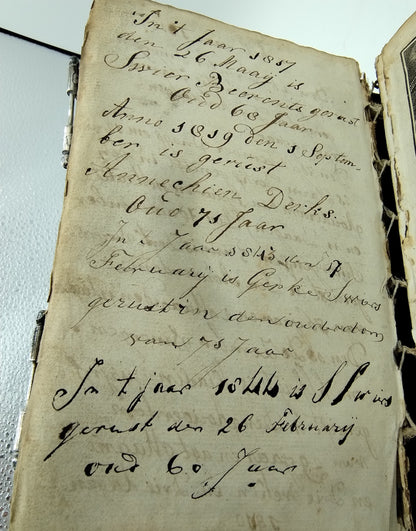 In 't Jaar 1817
den 26 Maaij is
Swier Beerents gerust
Oud 68 Jaar
Anno 1819 den 1 Septem-
ber is gerust
Annechien Derks.
Oud 71 Jaar
In t Jaar 1843 den 7
Februarij is Gerke Swiers
gerust in den ouderdom
van 75 Jaar
In t jaar 1844 is S Swiers
gerust den 26 Februarij
oud 60 Jaar